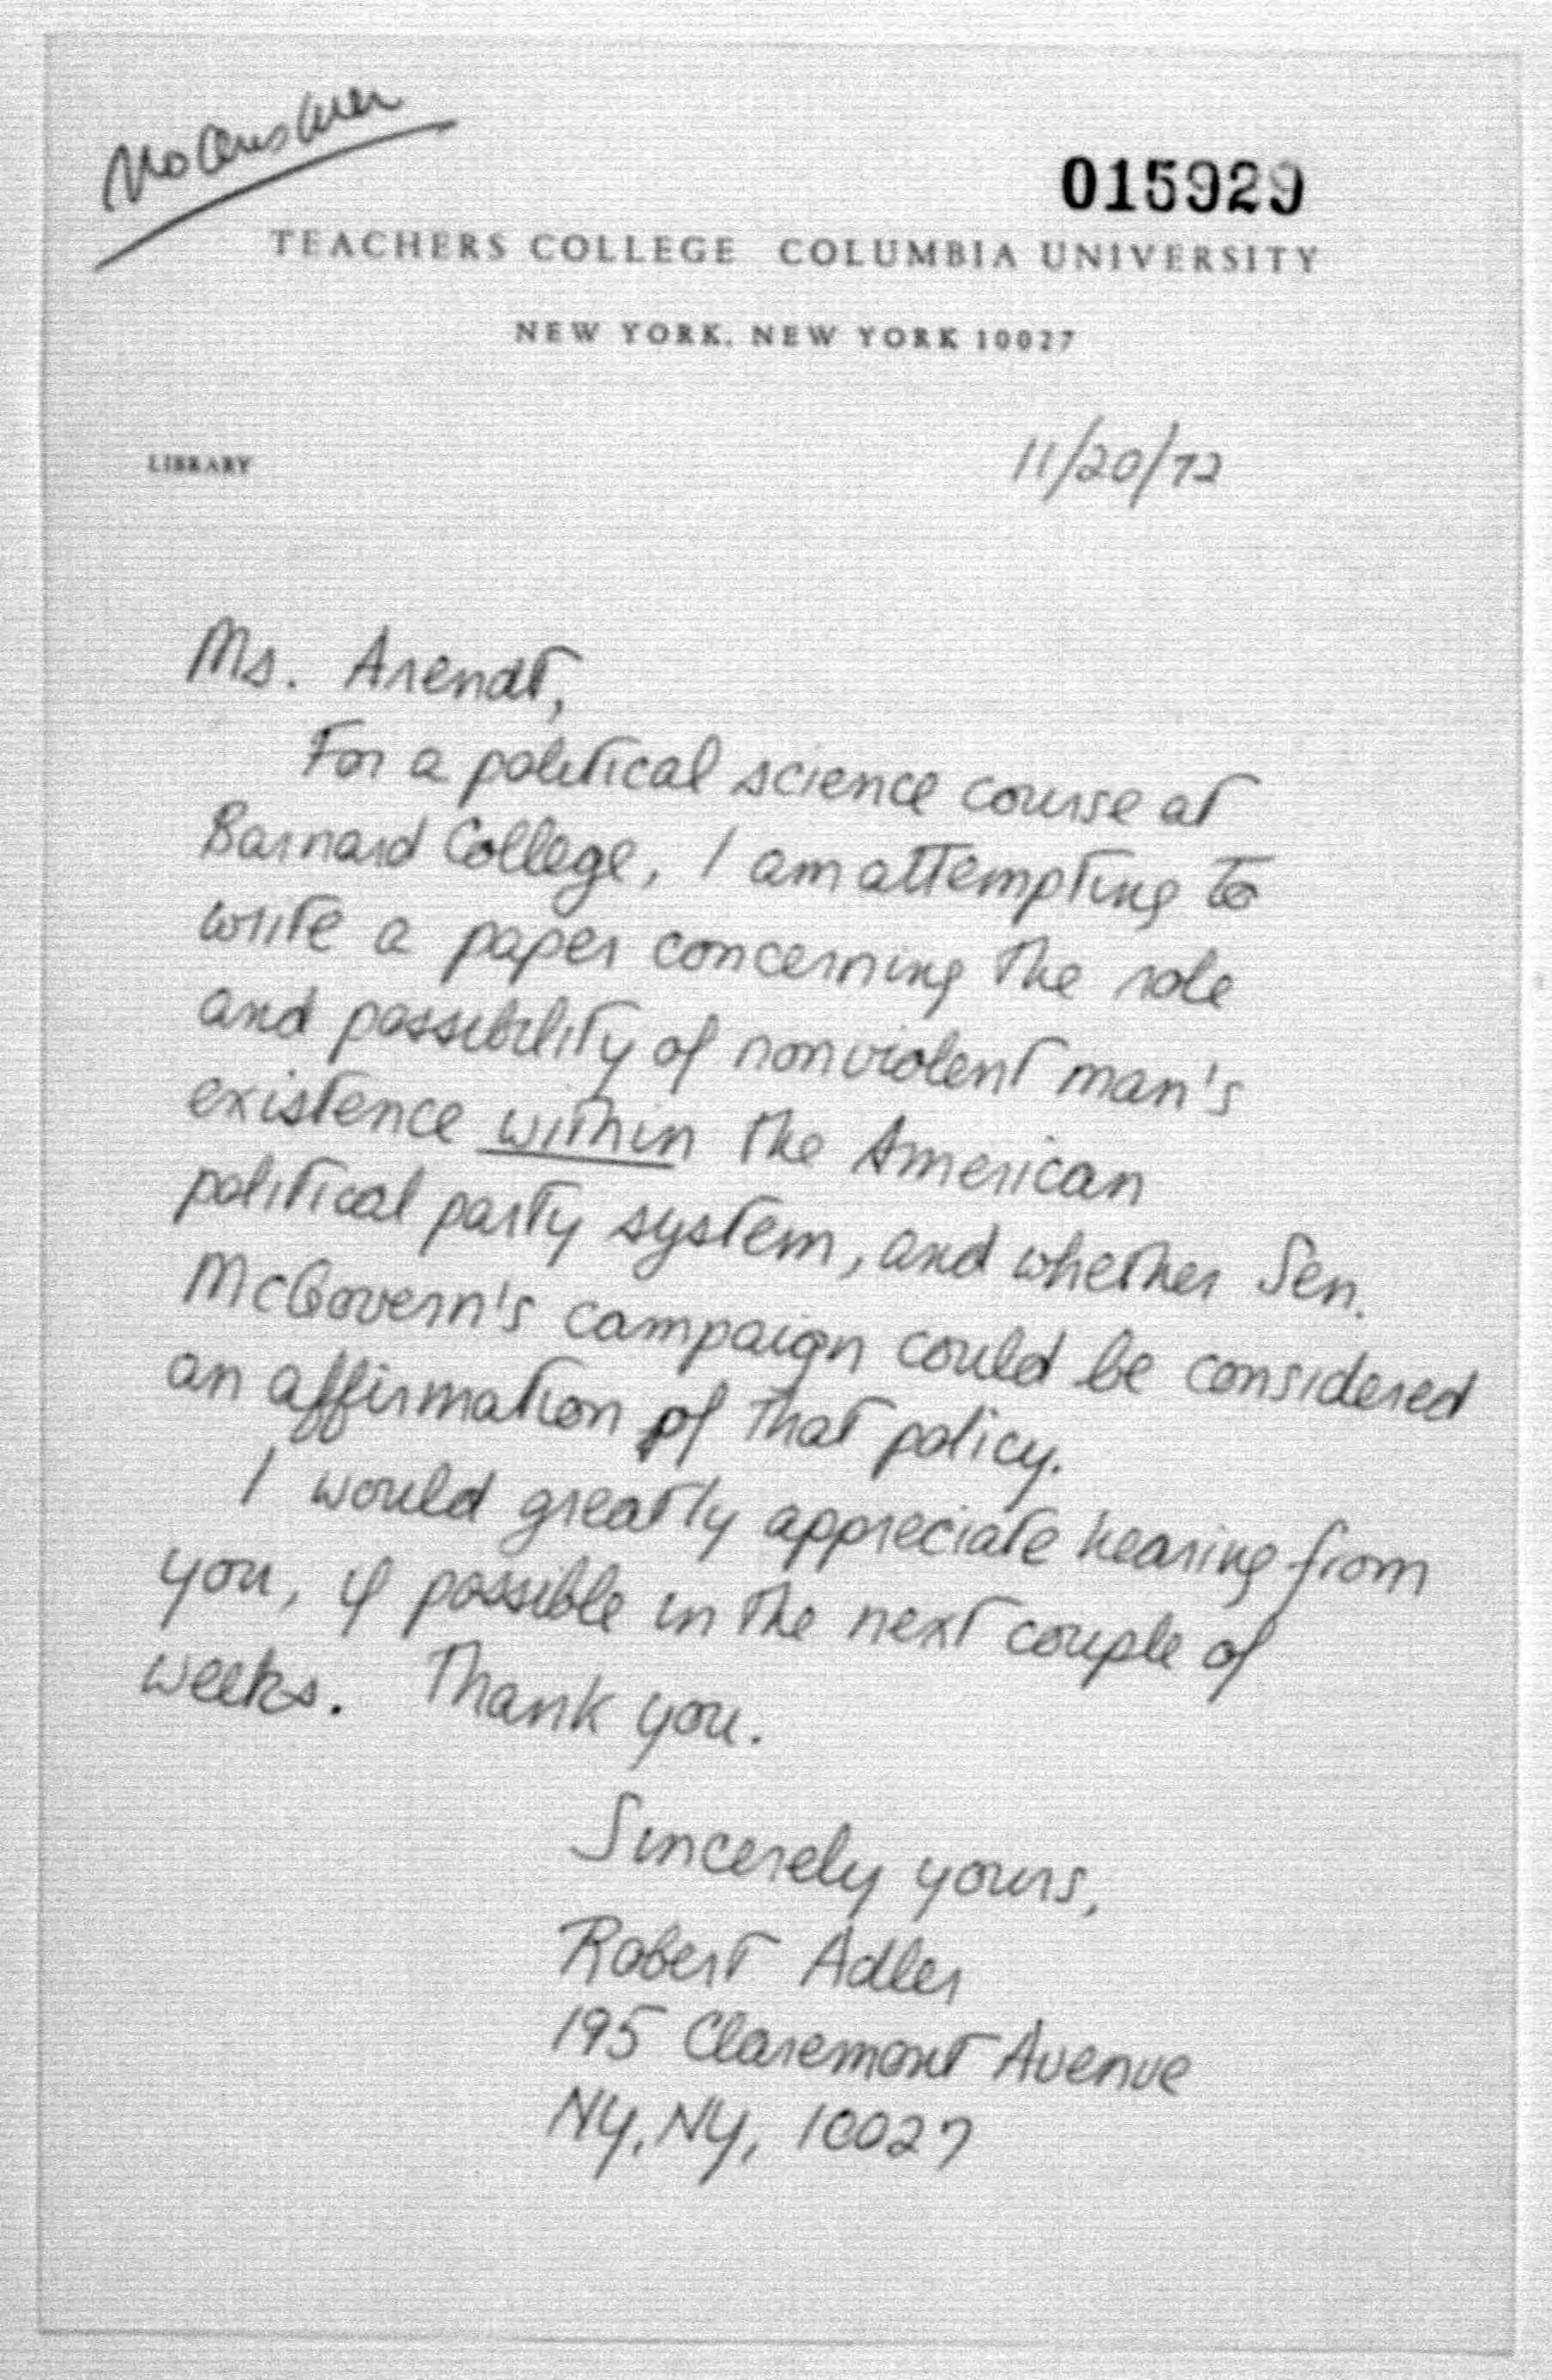 No answer
015929
TEACHERS COLLEGE COLUMBIA UNIVERSITY
NEW YORK, NEW YORK 10027
LIBRARY
11/20/72
Ms. Arendt,
For a political science course at
Barnard College, I am attempting to
write a paper concerning the role
and possibility of nonviolent man's
existence within the American
political party system, and whether Sen.
McGovern's campaign could be considered
an affirmation of that policy.
I would greatly appreciate hearing from
you, if possible in the next couple of
weeks. Thank you.
Sincerely yours,
Robert Adler
195 Claremont Avenue
NY, NY, 10027